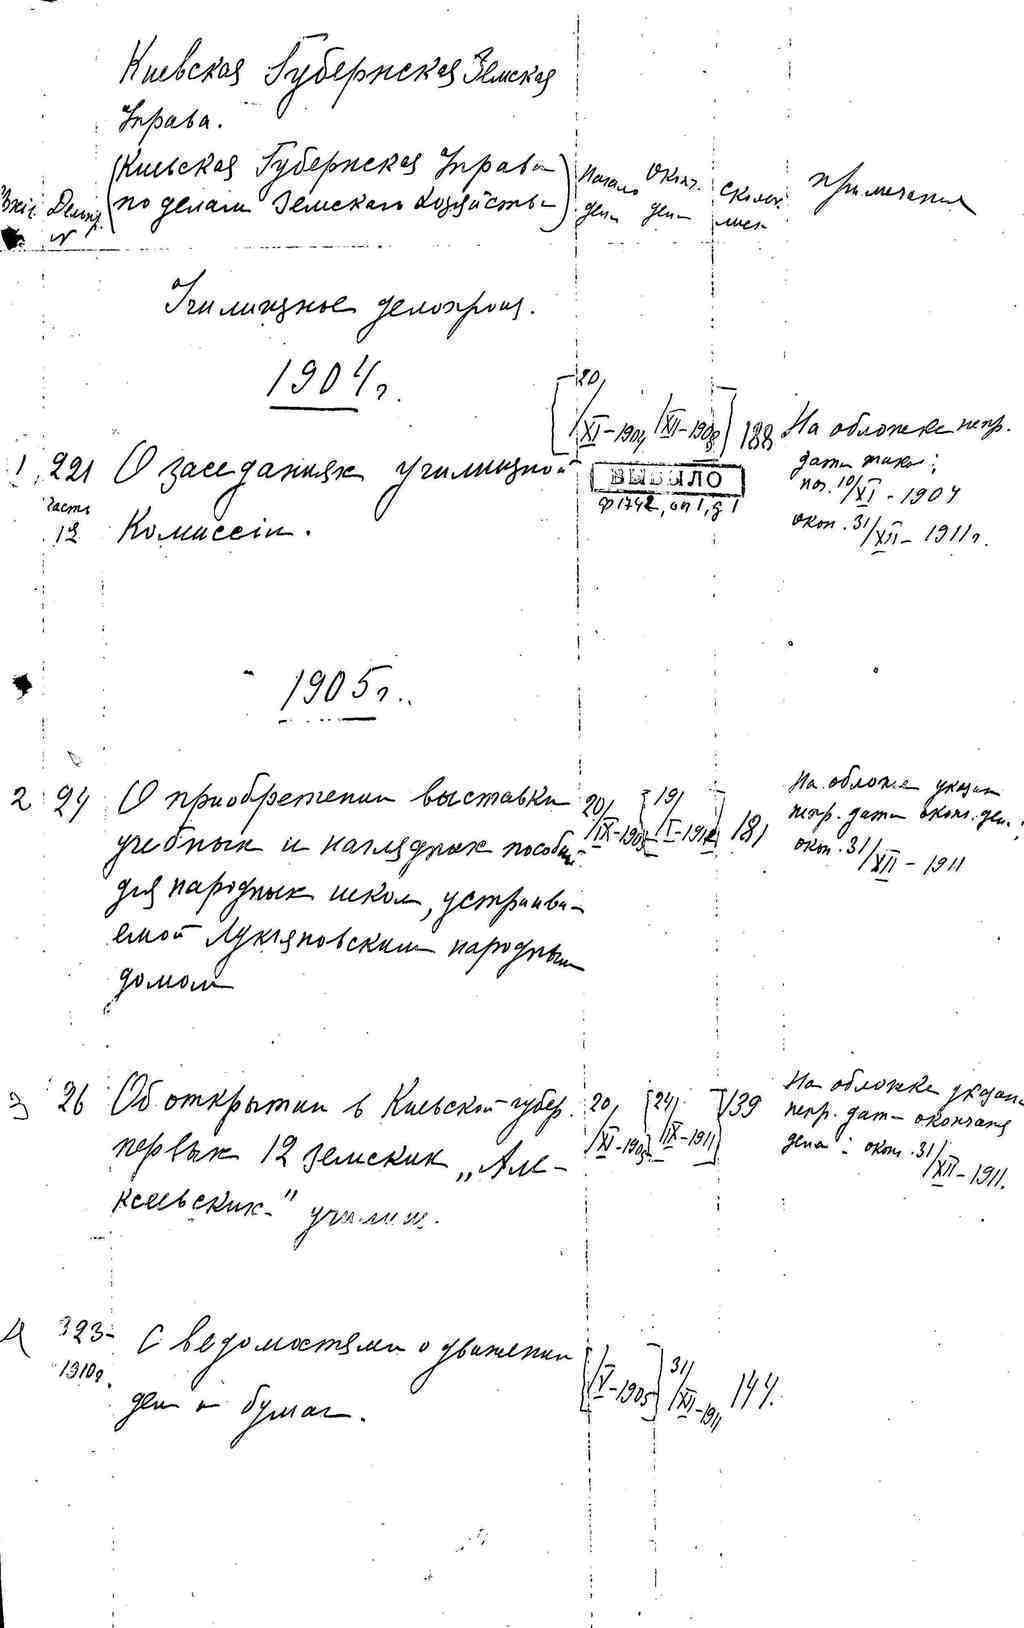 Киевская Губернская Земская
Управа.
(Киевская Губернская Управа
по делам Земского Хозяйства)
Делопр.
№
Начало дела
Оконч. дела
Сколько лист.
примечания
Училищное делопроиз.
1904 г.
1 221 часть 12
О заседаниях училищной
Комиссіи.
[20/XI-1904 /XII-1908] 188
ВЫБЫЛО
ф 1742, оп 1, д 1
На обложке непр.
даты такие:
нач. 10/XI - 1904
окон. 31/XII - 1911 г.
1905 г.
2 24 О приобретении выставки
учебных и наглядных пособий
для народных школ, устраива-
емой Лукьяновским народным
домом
20/IX-1905 [19/I-1912] 181
На обложке указан
непр. дата оконч. дела;
окон. 31/XII - 1911
3 26 Об открытии в Киевской губер.
первых 12 земских „Але-
ксеевских" училищ.
20/XI-1905 [24/IX-1911] 139
На обложке указана
непр. дата окончания
дела: окон. 31/XII - 1911.
4 323 - 1910 г.
С ведомостями о движении
дел и бумаг.
[/V-1905] 31/XII-1911 144.